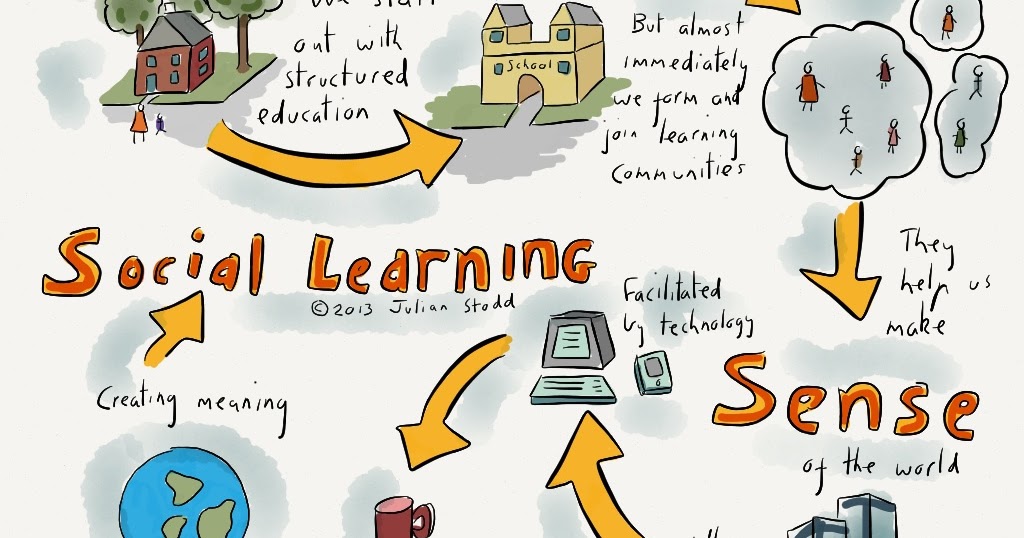 We start
out with
structured
education
School
But almost
immediately
we form and
join learning
communities
Social Learning
©2013 Julian Stodd
They
help us
make
Sense
of the world
Facilitated
by technology
Creating meaning